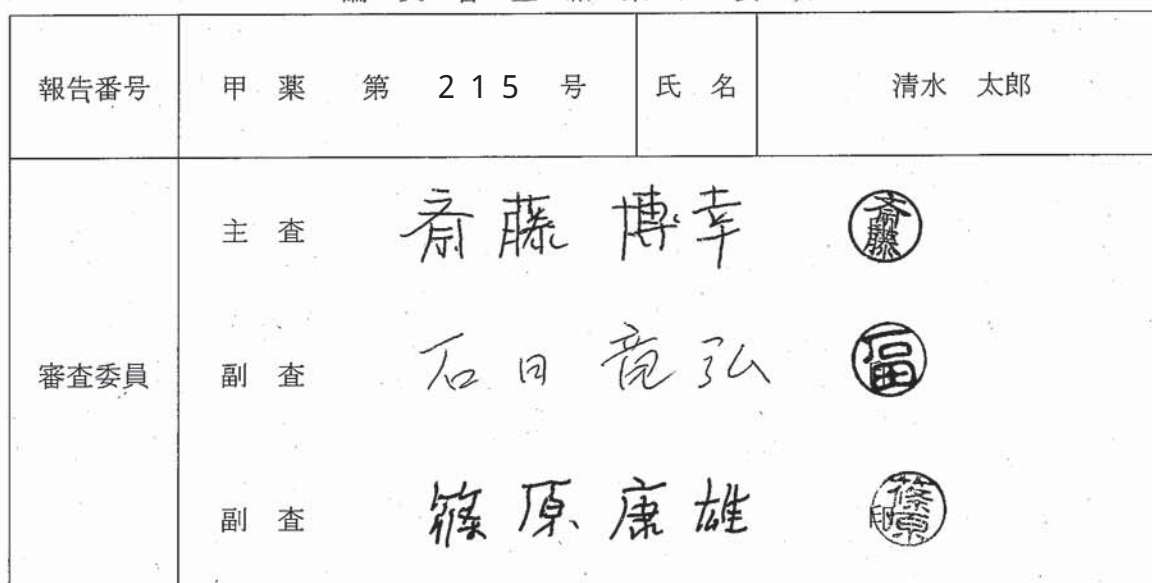 報告番号 甲 薬 第 215 号 氏 名 清水 太郎
主 査 斎藤 博幸 斎藤
審査委員 副 査 石田 竜弘 石田
副 査 篠原康雄 篠原印